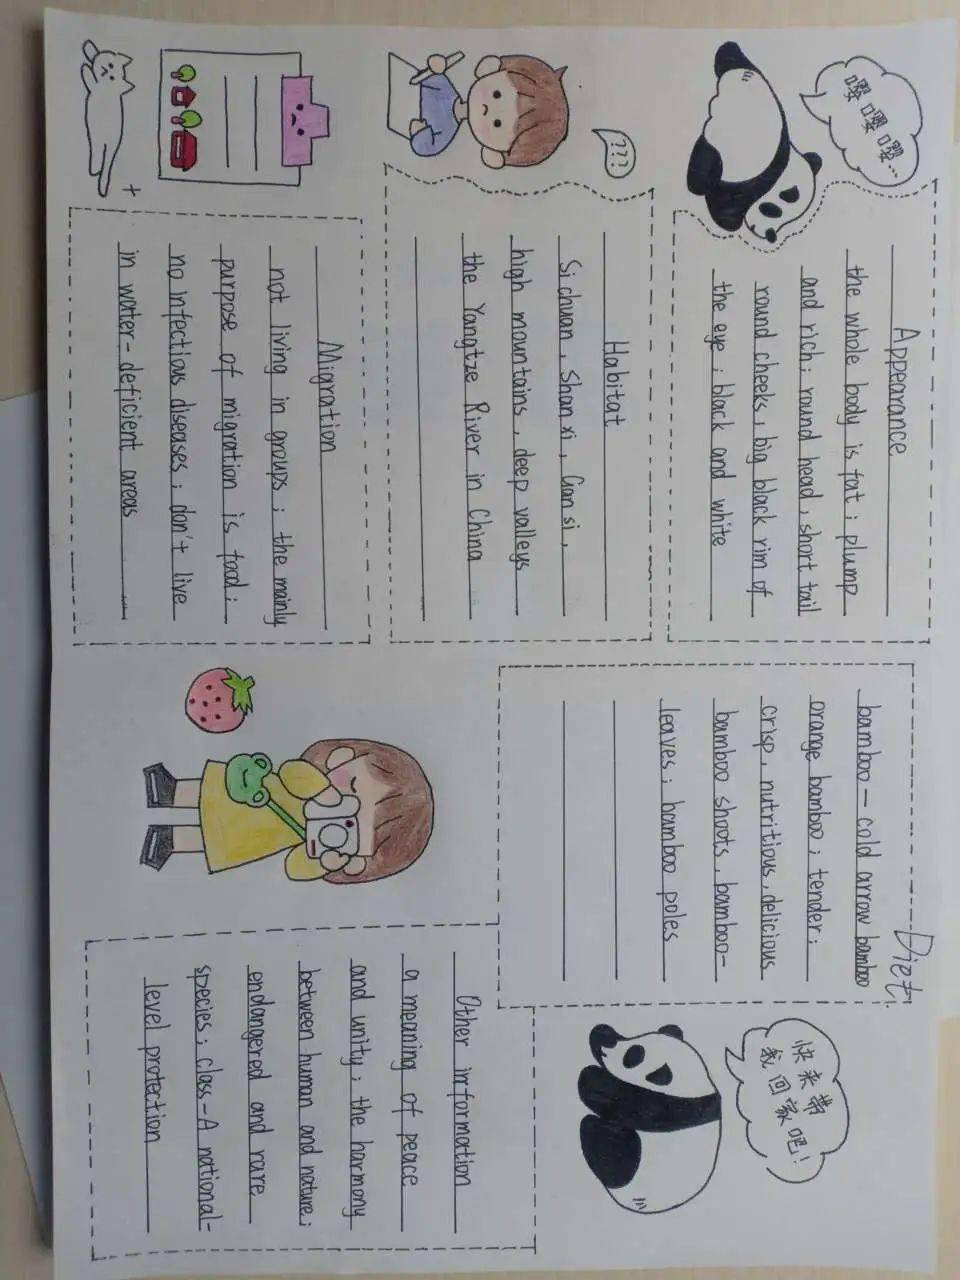 嘤嘤嘤…
Appearance
the whole body is fat; plump
and rich; round head, short tail
round cheeks, big black rim of
the eye; black and white
???
Habitat
Sichuan, Shanxi, Gansi,
high mountains, deep valleys
the Yangtze River in China
Migration
not living in groups; the mainly
purpose of migration is food;
no infectious diseases; don't live
in water-deficient areas
Diet
bamboo — cold arrow bamboo
orange bamboo; tender;
crisp, nutritious, delicious
bamboo shoots, bamboo-
leaves; bamboo poles
快来带
我回家吧!
Other information
a meaning of peace
and unity; the harmony
between human and nature;
endangered and rare
species; class-A national-
level protection